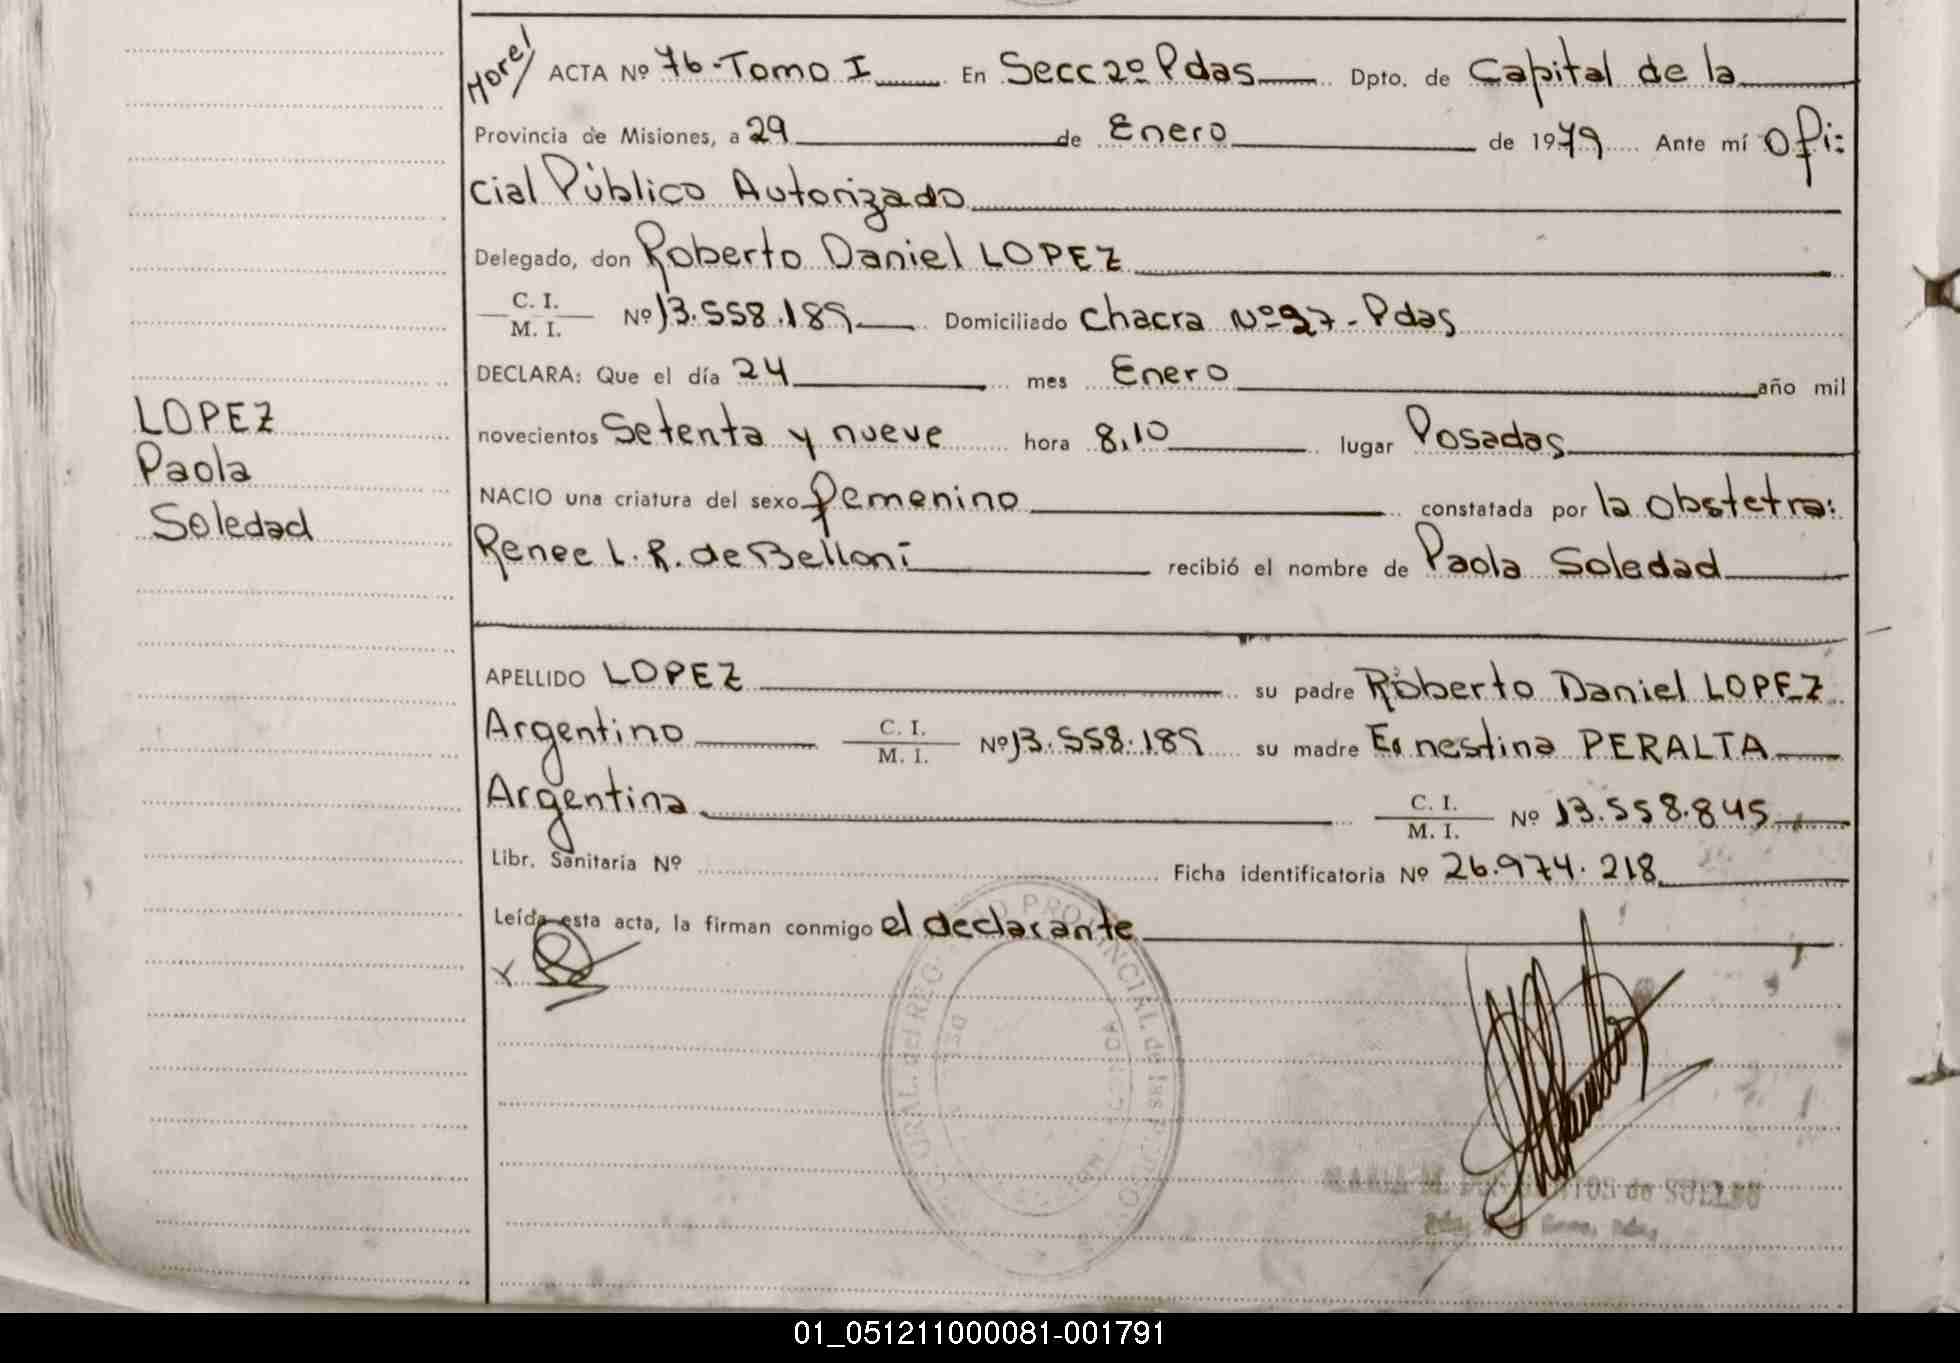 More/ ACTA Nº 76-Tomo I En Secc 2º Pdas Dpto. de Capital de la
Provincia de Misiones, a 29 de Enero de 1979 Ante mí Ofi:
cial Público Autorizado
Delegado, don Roberto Daniel LOPEZ
C. I.
M. I. Nº 13.558.189 Domiciliado Chacra Nº 97-Pdas
DECLARA: Que el día 24 mes Enero año mil
novecientos Setenta y nueve hora 8,10 lugar Posadas
NACIO una criatura del sexo femenino constatada por la Obstetra:
Renee L. R. de Belloni recibió el nombre de Paola Soledad
LOPEZ
Paola
Soledad
APELLIDO LOPEZ su padre Roberto Daniel LOPEZ
Argentino C. I. M. I. Nº 13.558.189 su madre Ernestina PERALTA
Argentina C. I. M. I. Nº 13.558.845
Libr. Sanitaria Nº Ficha identificatoria Nº 26.974.218
Leída esta acta, la firman conmigo el declarante
PROVINCIAL de las
MARIA M. DOS SANTOS de
01_051211000081-001791